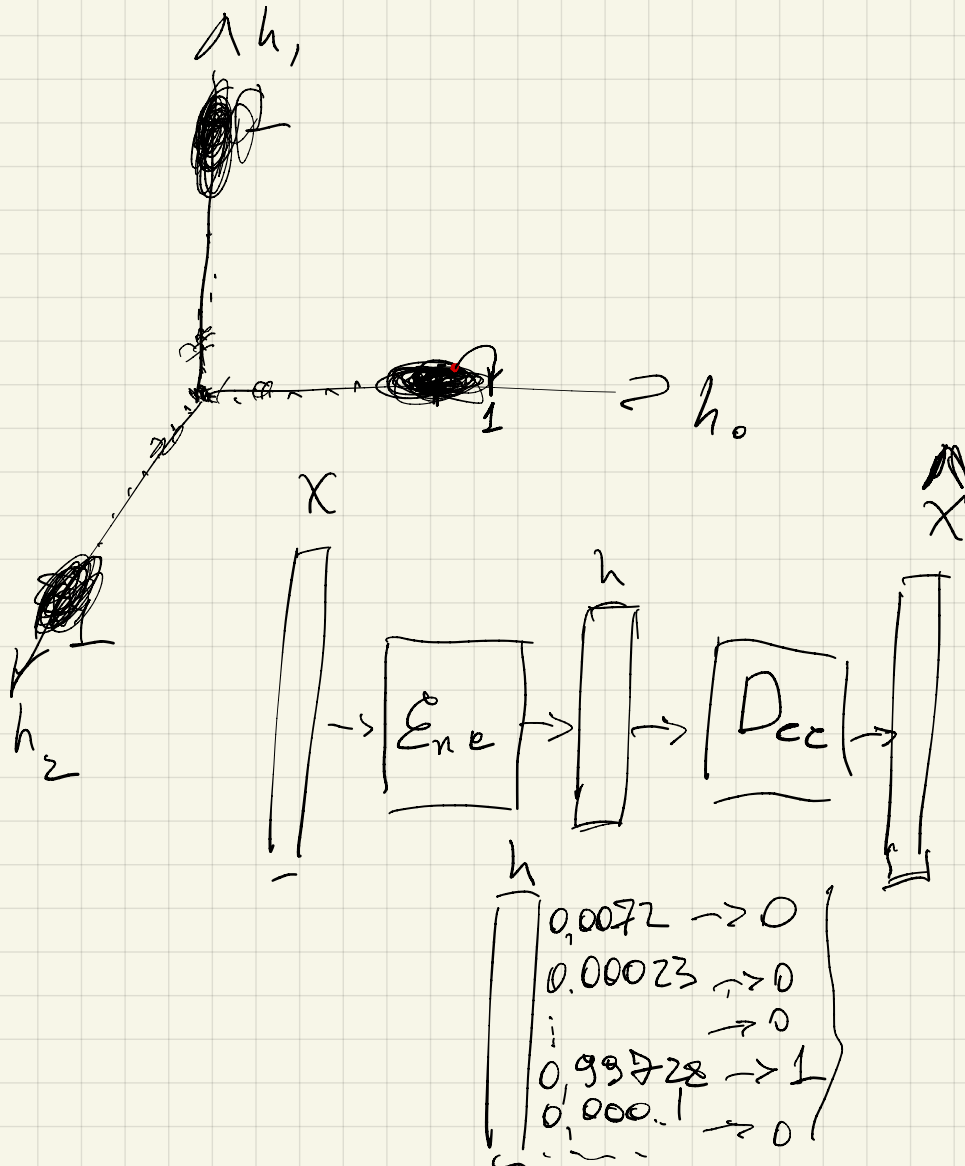 h₁
1
h₀
1
h₂
x
h
x̂
Enc
Dec
h
0,0072 → 0
0.00023 → 0
⋮ → 0
0,99728 → 1
0,000..1 → 0